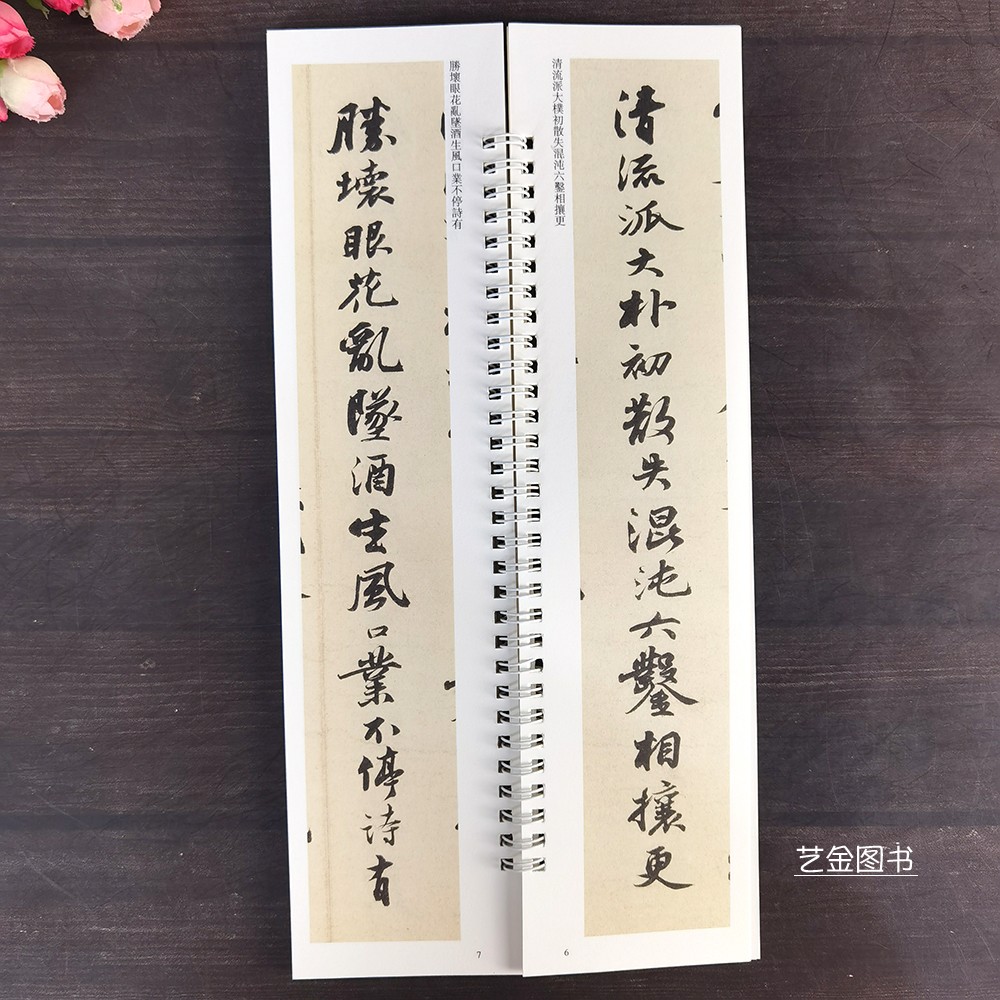 清流派大樸初散失混沌六鑿相攘更
清流派大朴初散失混沌六鑿相攘更
6
勝壞眼花亂墜酒生風口業不停詩有
勝壞眼花亂墜酒生風口業不停詩有
7
艺金图书